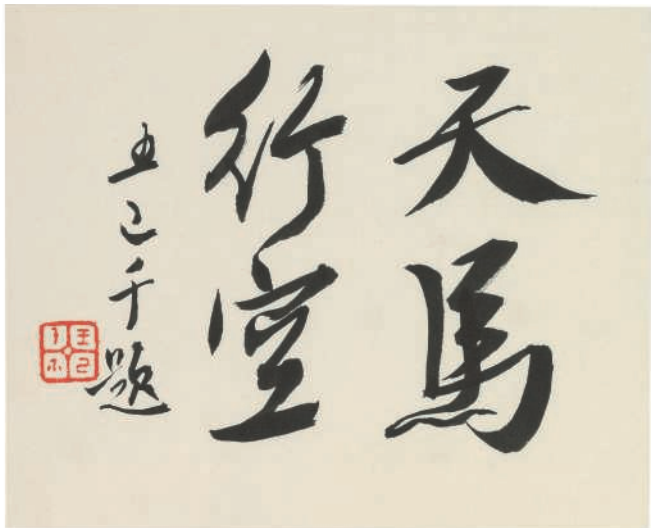 天馬
行空
王己千題